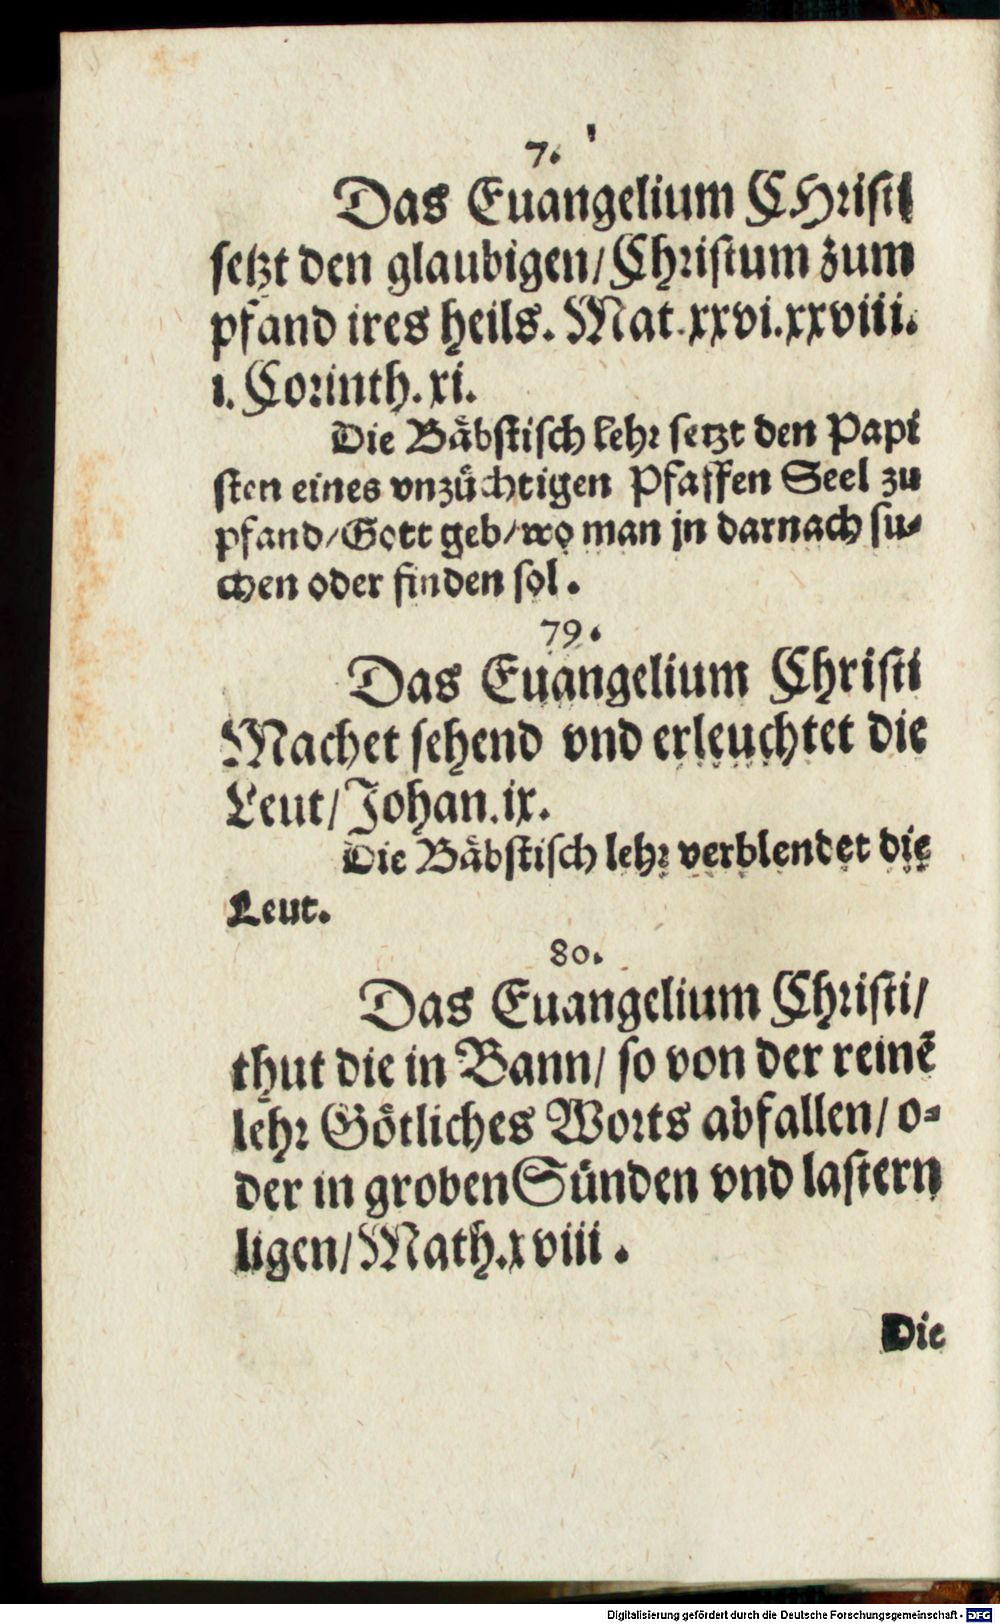 7.
Das Euangelium CHristi
setzt den glaubigen/ Christum zum
pfand ires heils. Mat. xxvi. xxviii.
1. Corinth. xi.
Die Bäbstisch lehr setzt den Papi
sten eines vnzüchtigen Pfaffen Seel zu
pfand/ Gott geb/ wo man jn darnach su-
chen oder finden sol.
79.
Das Euangelium Christi
Machet sehend vnd erleuchtet die
Leut/ Johan. ix.
Die Bäbstisch lehr verblendet die
Leut.
80.
Das Euangelium Christi/
thut die in Bann/ so von der reinẽ
lehr Götliches Worts abfallen/ o-
der in groben Sünden vnd lastern
ligen/ Math. xviii.
Die
Digitalisierung gefördert durch die Deutsche Forschungsgemeinschaft - DFG